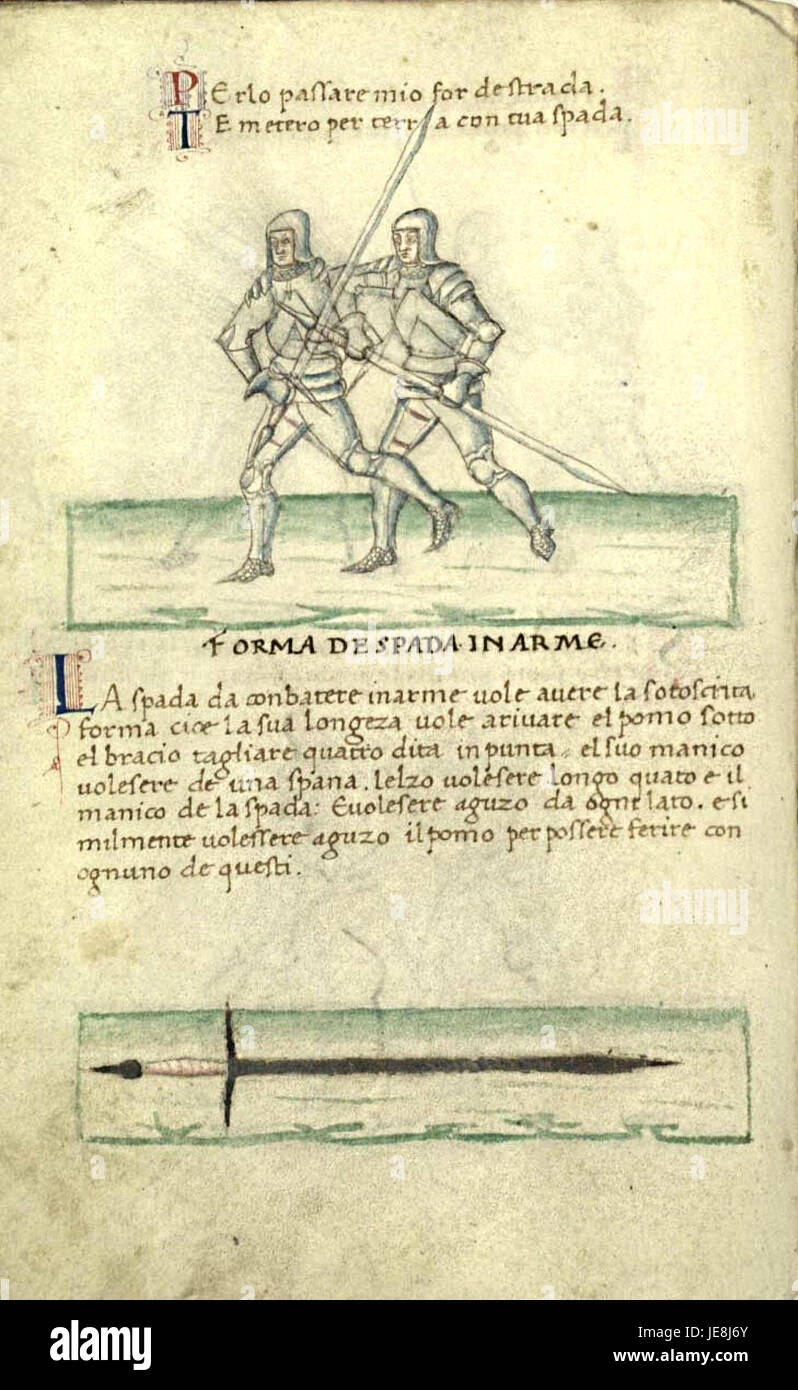 PErlo passare mio for de strada.
TE metero per terra con tua spada.
FORMA DE SPADA IN ARME.
LA spada da conbatere inarme vole avere la sotoscrita
forma cioe la sua longeza vole arivare el pomo sotto
el bracio tagliare quatro dita in punta el suo manico
volesere de una spana. Lelzo volesere longo quato e il
manico de la spada: Evolesere aguzo da ogne lato. e si
milmente volessere aguzo il pomo per possere ferire con
ognuno de questi.
alamy
alamy
alamy
alamy
Image ID: JE8J6Y
www.alamy.com